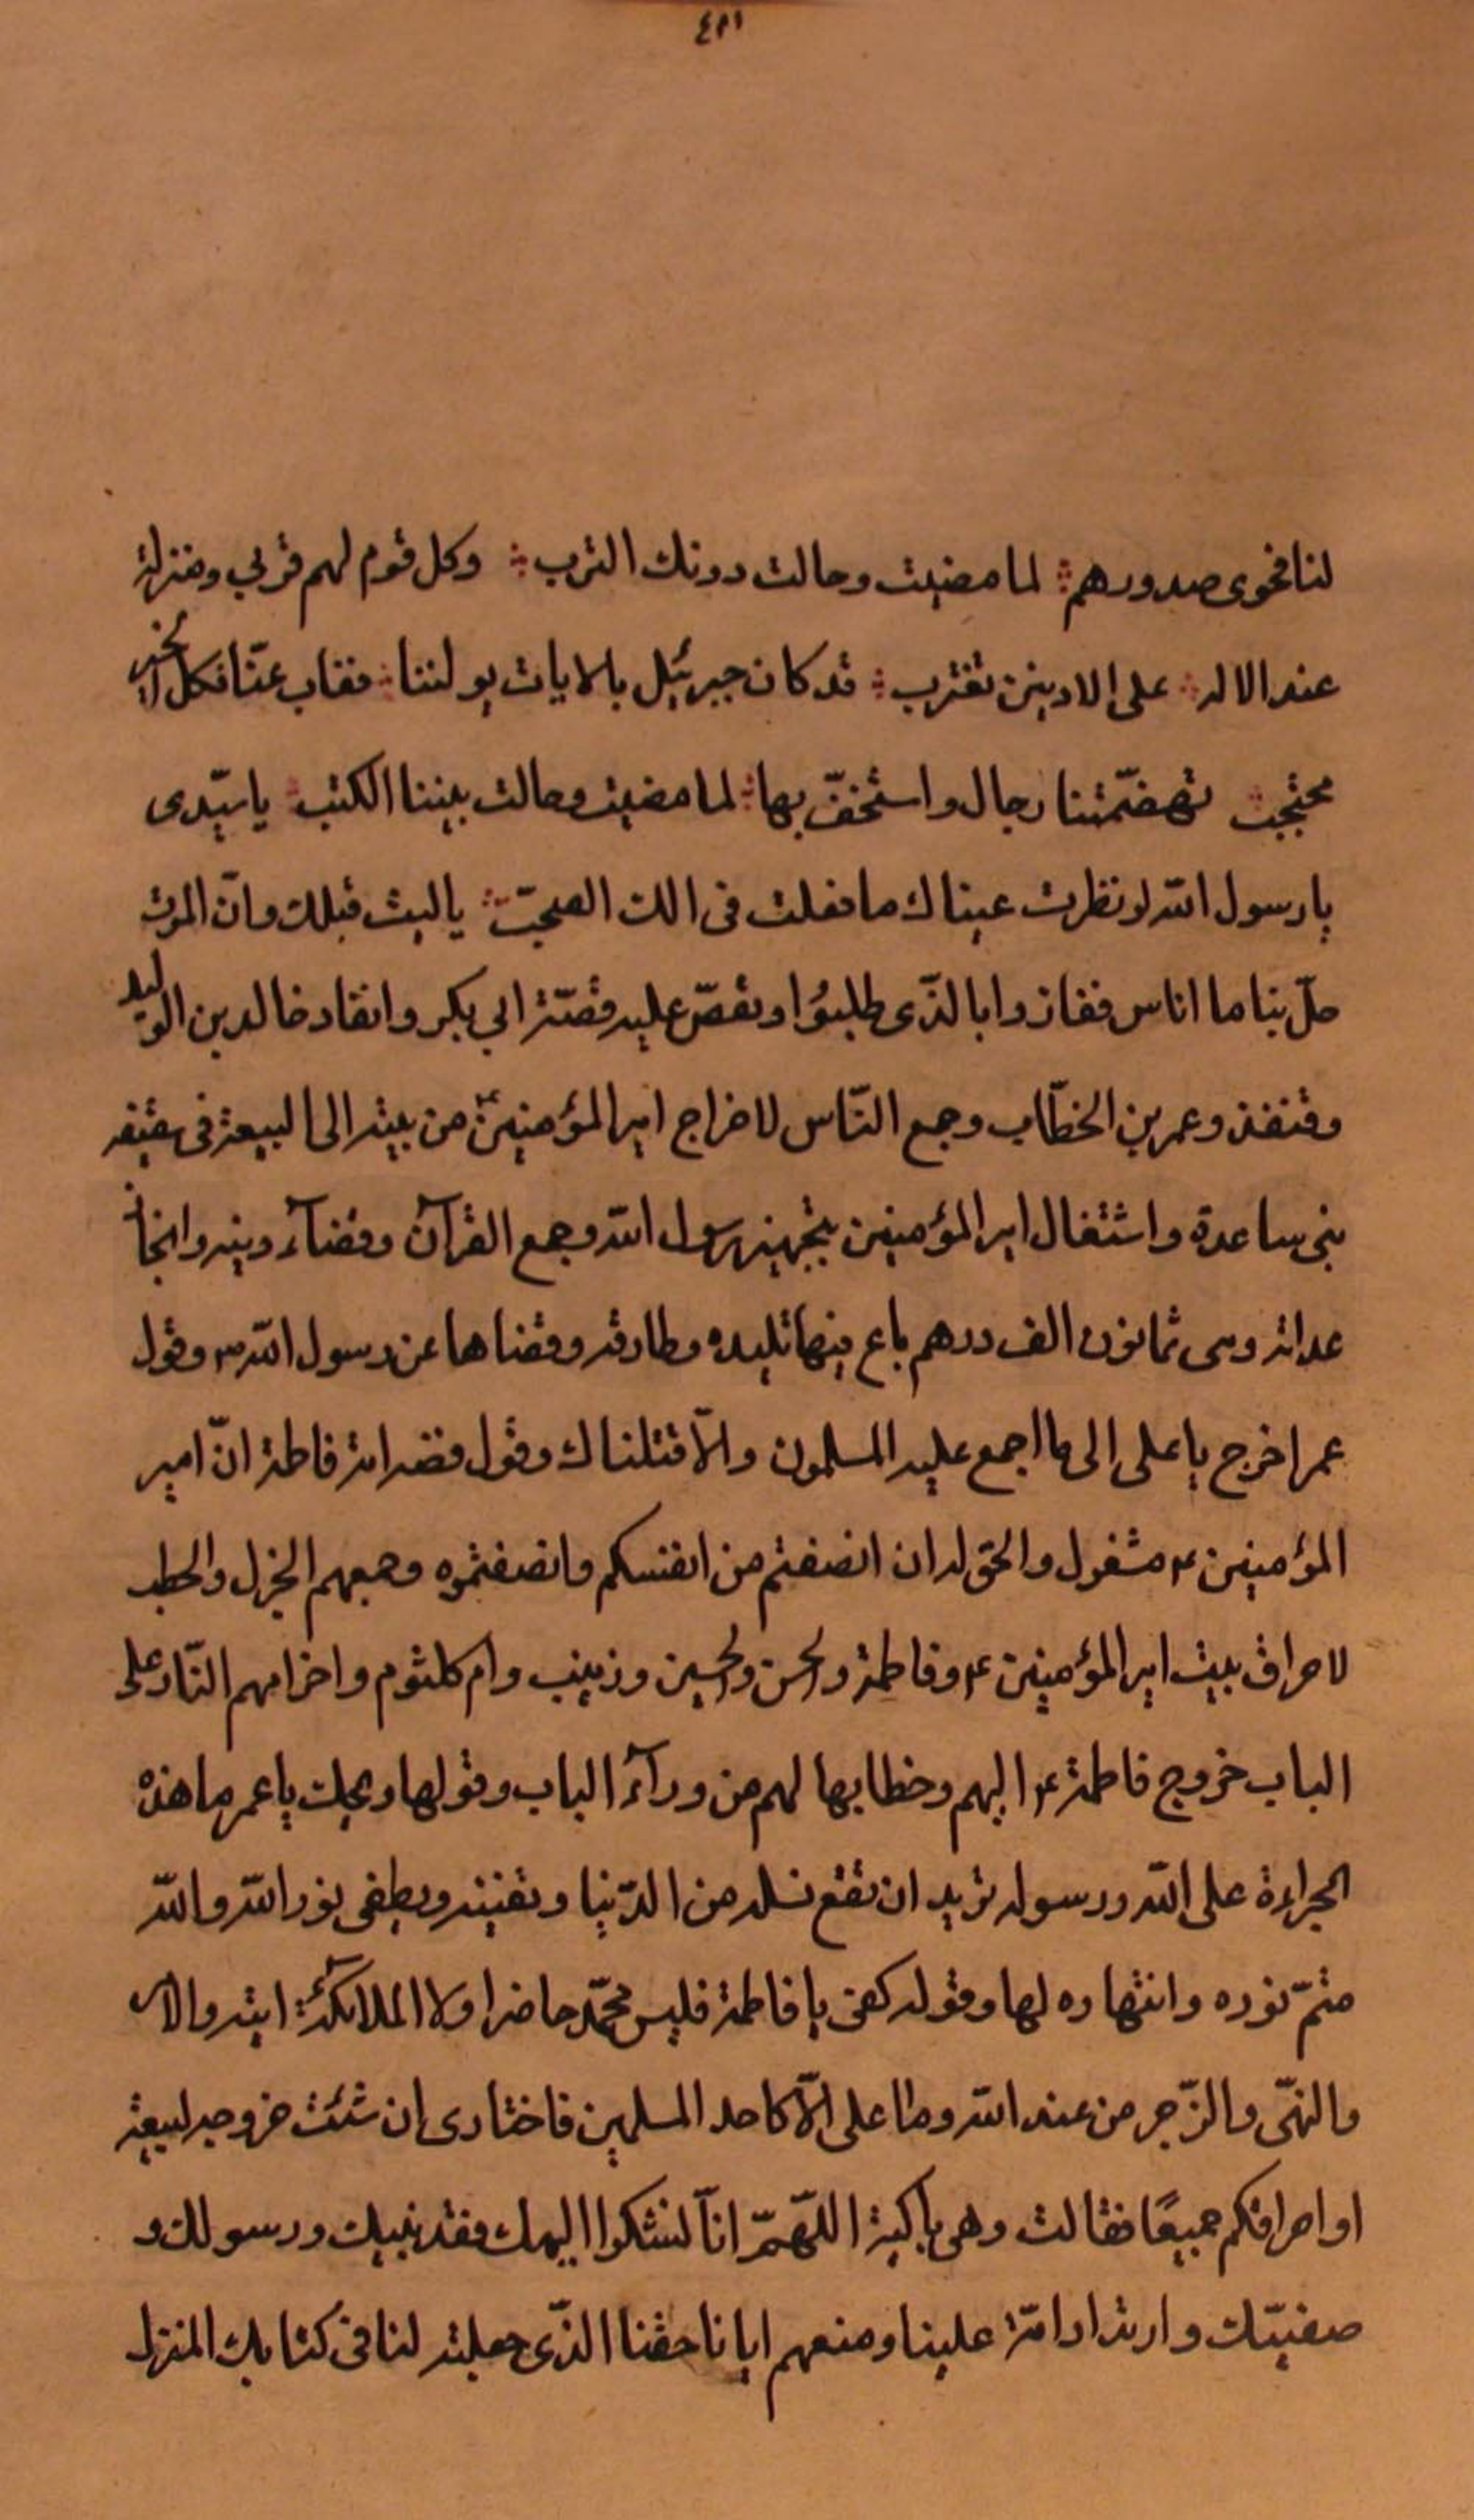 ٤٢١
لنا فحوى صدورهم لما مضيت وحالت دونك الترب وكل قوم لهم قربى ومنزلة
عند الاله على الادنين تقترب قد كان جبرئيل بالايات يولننا فغاب عنّا فكل الخير
محتجب تهضّمتنا رجال واستخفّ بها لما مضيت وحالت بيننا الكتب يا سيّدى
يا رسول الله لو نظرت عيناك ما فعلت فى الك الصحبّ يا ليت قبلك وانّ الموت
حلّ بنا ما اناس ففازوا بالذّى طلبوُا ويقصّ عليه قصّة ابي بكر وانفاد خالد بن الوليد
وقنفذ وعمر بن الخطّاب وجمع النّاس لاخراج امير المؤمنين ع من بيته الى البيعة فى سقيفه
بنى ساعدة واشتغال امير المؤمنين بتجهيز رسول الله وجمع القرآن وقضآء دينه وانجاز
عداته وهى ثمانون الف درهم باع فيها تليده وطارفه وقضاها عن رسول الله ص وقول
عمر اخرج يا على الى ما اجمع عليه المسلمون والّا قتلناك وقول فضه امة فاطمة انّ امير
المؤمنين ع مشغول والحق له ان انصفتم من انفسكم وانصفتموه وجمعهم الجزل والحطب
لاحراق بيت امير المؤمنين ع وفاطمة والحسن والحسين وزينب وام كلثوم واضرامهم النّار على
الباب خروج فاطمة ع اليهم وخطابها لهم من ورآء الباب وقولها ويحك يا عمر ما هذه
الجراءة على الله ورسوله تريد ان تقتع نسله من الدّنيا وتفنينه ويطفى نور الله والله
متمّ نوره وانتهاره لها وقوله كفى يا فاطمة فليس محمّد حاضرا ولا الملائكة اتيه والامر
والنهّى والزّجر من عند الله وما على الّا كاحد المسلمين فاختارى ان شئت خروجه لبيعة
او احراقكم جميعًا فقالت وهى باكية اللّهمّ انّا لنشكوا اليك فقد نبيك ورسولك و
صفيّك وارتداد امّة علينا ومنعهم ايانا حقنا الذّى جعلته لنا فى كتابك المنزل